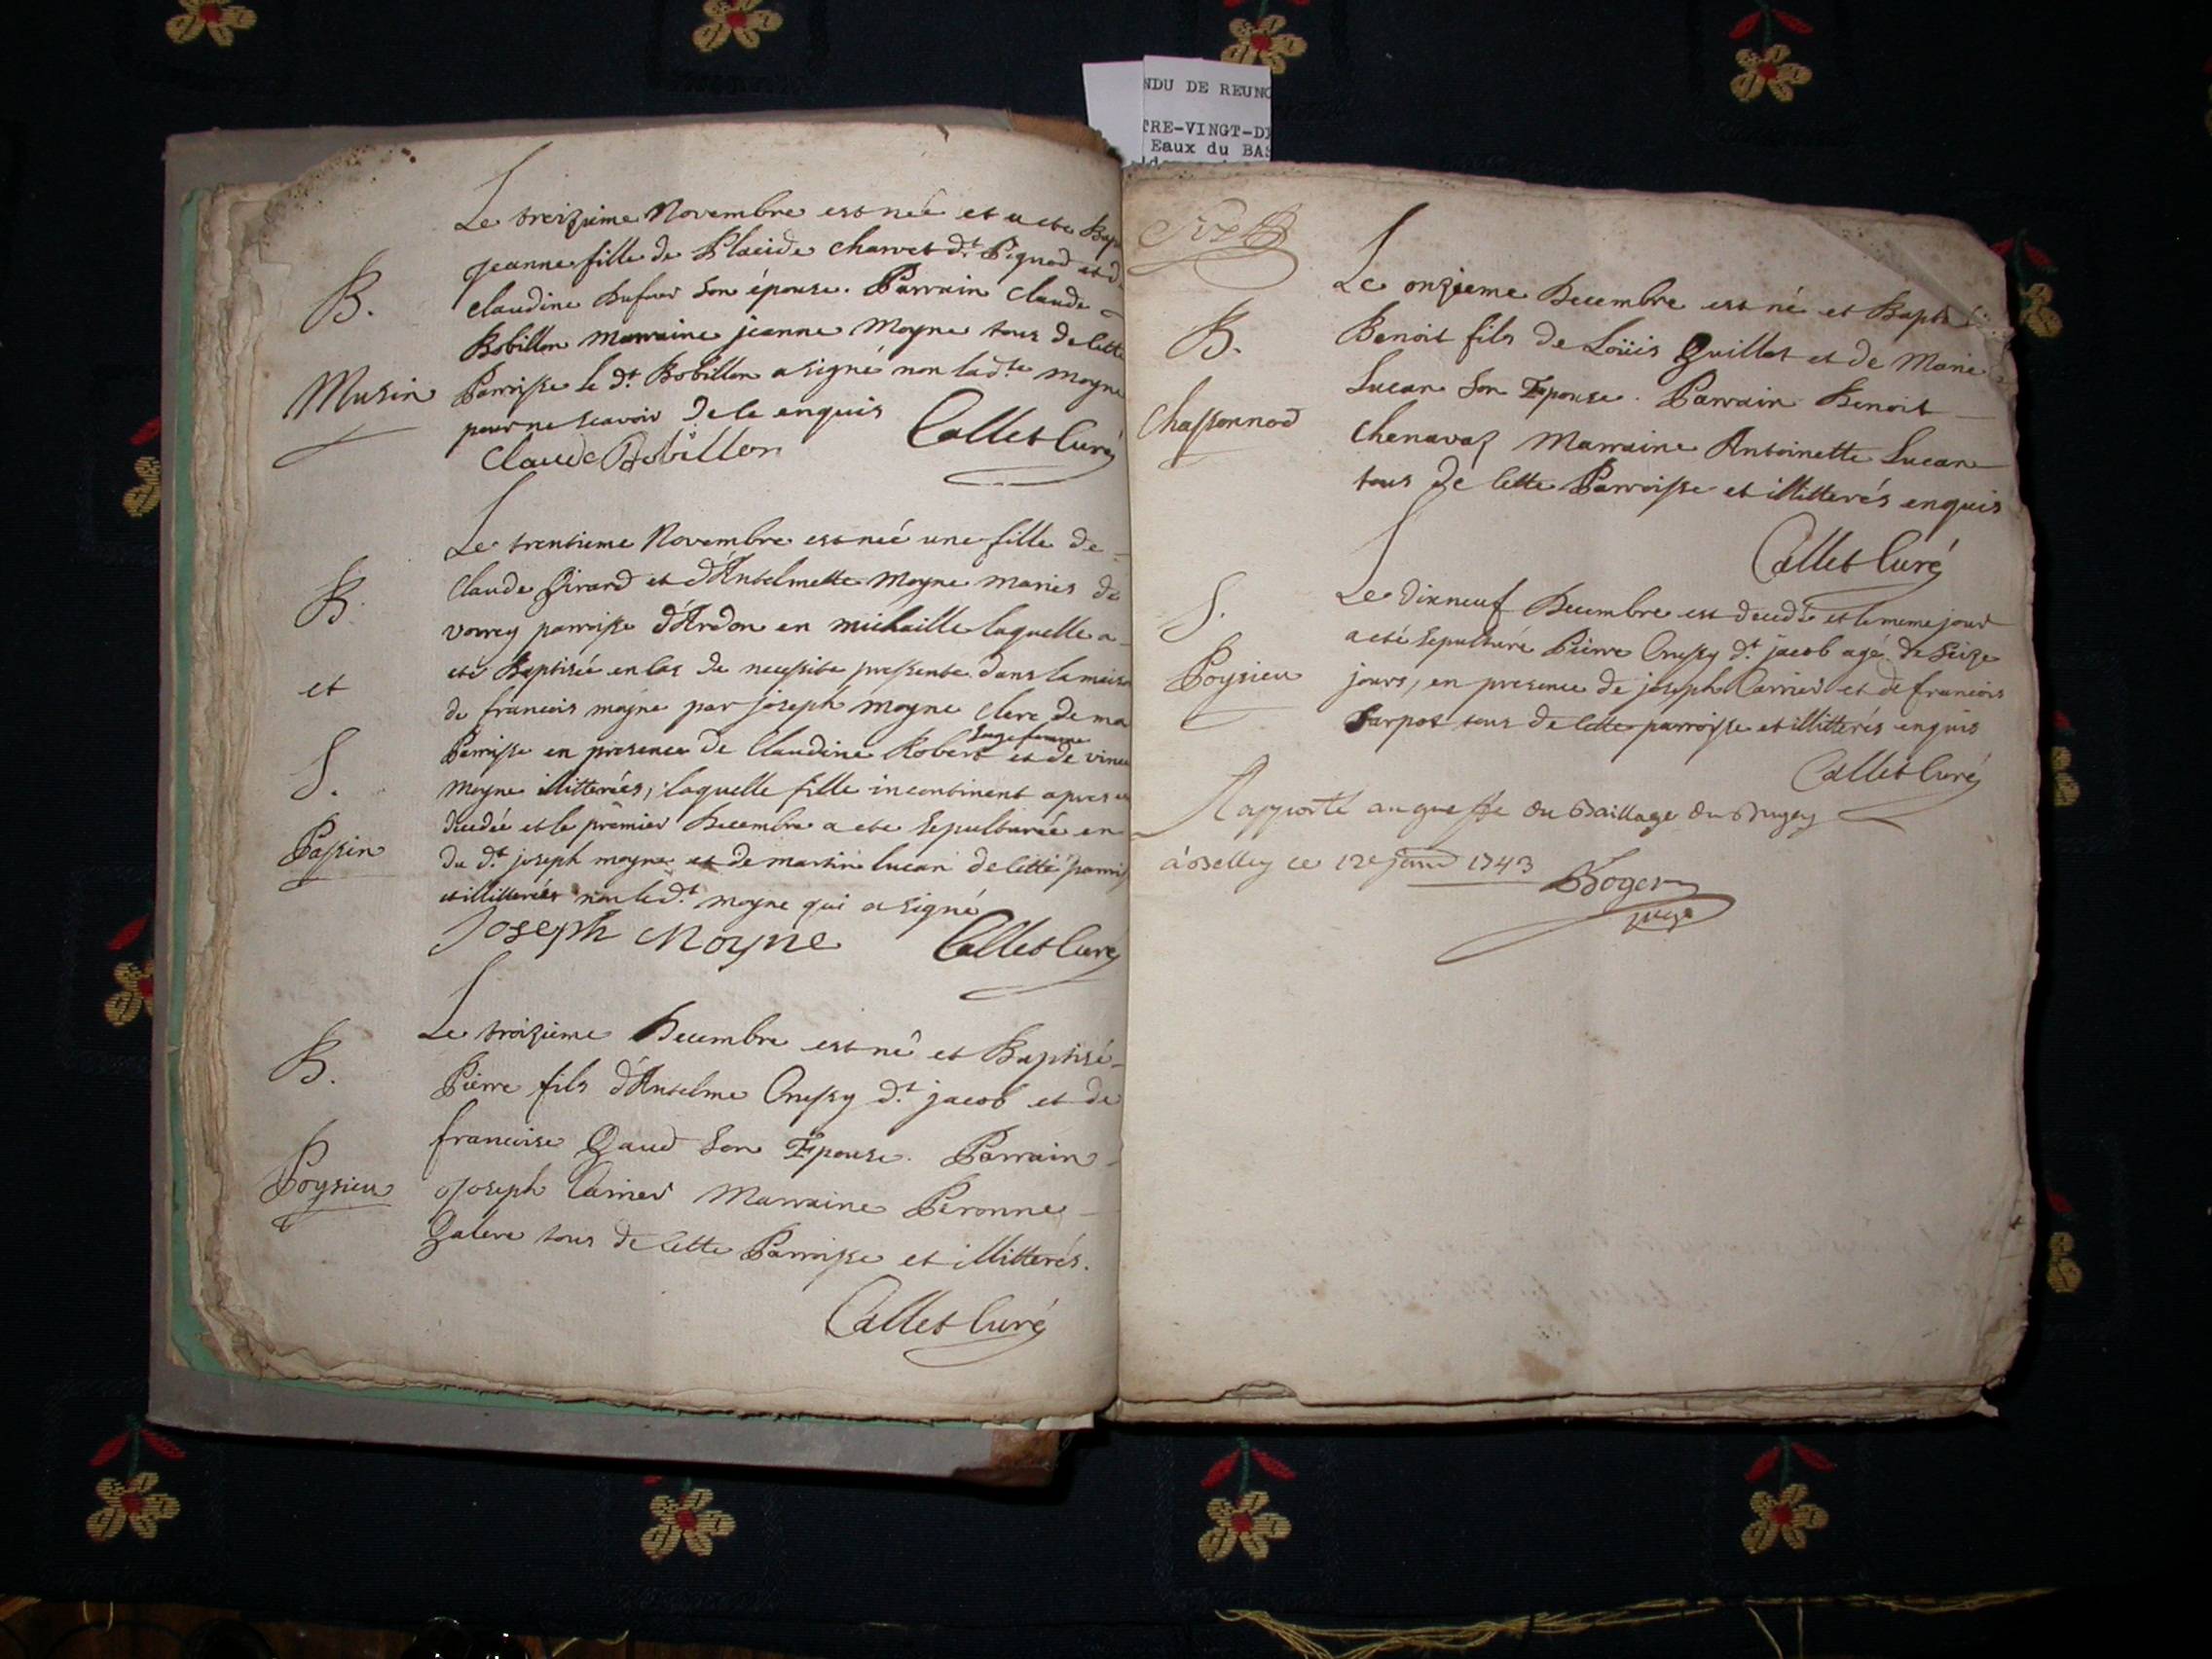 NDU DE REUNO
TRE-VINGT-DI
Eaux du BAS
Le treizieme Novembre est née et a ete Bap
Jeanne fille de Placide charvet d.t Pignod et d
B.
claudine Dufour son épouse. Parrain claude
Bobillon marraine jeanne Moyne tous de cette
Musin
Parroisse le d.t Bobillon a signé non lad.te moyne
pour ne scavoir de ce enquis
Claude Bobillon
Callet Curé
Le trentieme Novembre est neé une fille de
B.
claude Girard et d'Antelmette moyne maries de
vovrey parroisse d'Ardon en michaille laquelle a
eté Baptisée en cas de necessite pressente dans la maison
et
de francois moyne par joseph moyne clerc de ma
sage femme
Parroisse en presence de Claudine Robert et de vince
S.
moyne illitterées, laquelle fille incontinent apres
decedée et le premier Decembre a ete sepulturée en
Passin
du d.t joseph moyne et de martin lucan de cette parroi
et illitterés non le d.t moyne qui a signé
Joseph Moyne
Callet Curé
Le troizieme Decembre est né et Baptisé
B.
Pierre fils d'Antelme Crussy d.t jacob et de
francoise Gaud son Epouse. Parrain
Poysieu
Joseph Carrier Marraine Peronne
Galere tous de cette Parroisse et illitterés.
Callet Curé
Le onzieme Decembre est né et Baptisé
B.
Benoit fils de Loüis Guillot et de Marie
Lucan son Epouse. Parrain Benoit
Chassonnod
chenavaz Marraine Antoinette Lucan
tous de cette Parroisse et illitterés enquis
Callet Curé
S.
Le dixneuf Decembre est decedé et le meme jour
a eté sepulturé Pierre Crussy d.t jacob agé de seize
Poysieu
jours, en presence de joseph Carrier et de francois
Carpot tous de cette parroisse et illitterés enquis
Callet Curé
Rapporté au greffe du Baillage du Bugey
à Belley ce 12e janv 1743